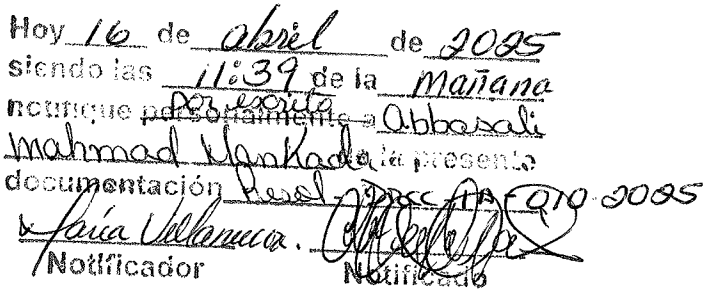 Hoy 16 de abril de 2025
siendo las 11:39 de la Mañana
notifique por escrito personalmente a Abbasali
Mahmad Mankada la presente
documentación Resol 010-2025
Maria Villanueva.
Notificador Notificado